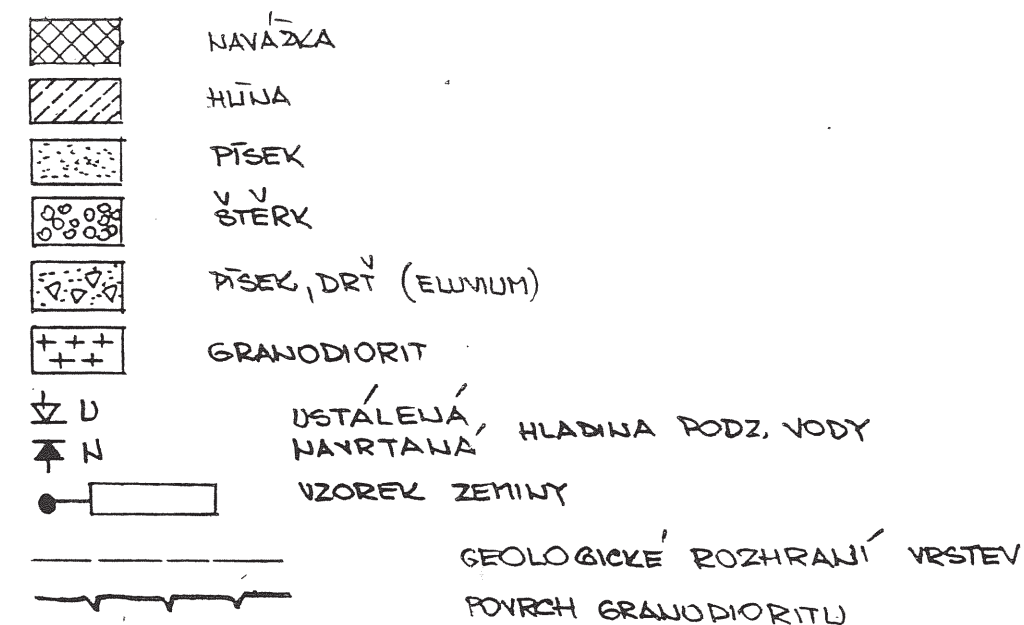 NAVÁŽKA
HLÍNA
PÍSEK
ŠTĚRK
PÍSEK, DRŤ (ELUVIUM)
GRANODIORIT
U USTÁLENÁ,
N NAVRTANÁ HLADINA PODZ. VODY
VZOREK ZEMINY
GEOLOGICKÉ ROZHRANÍ VRSTEV
POVRCH GRANODIORITU